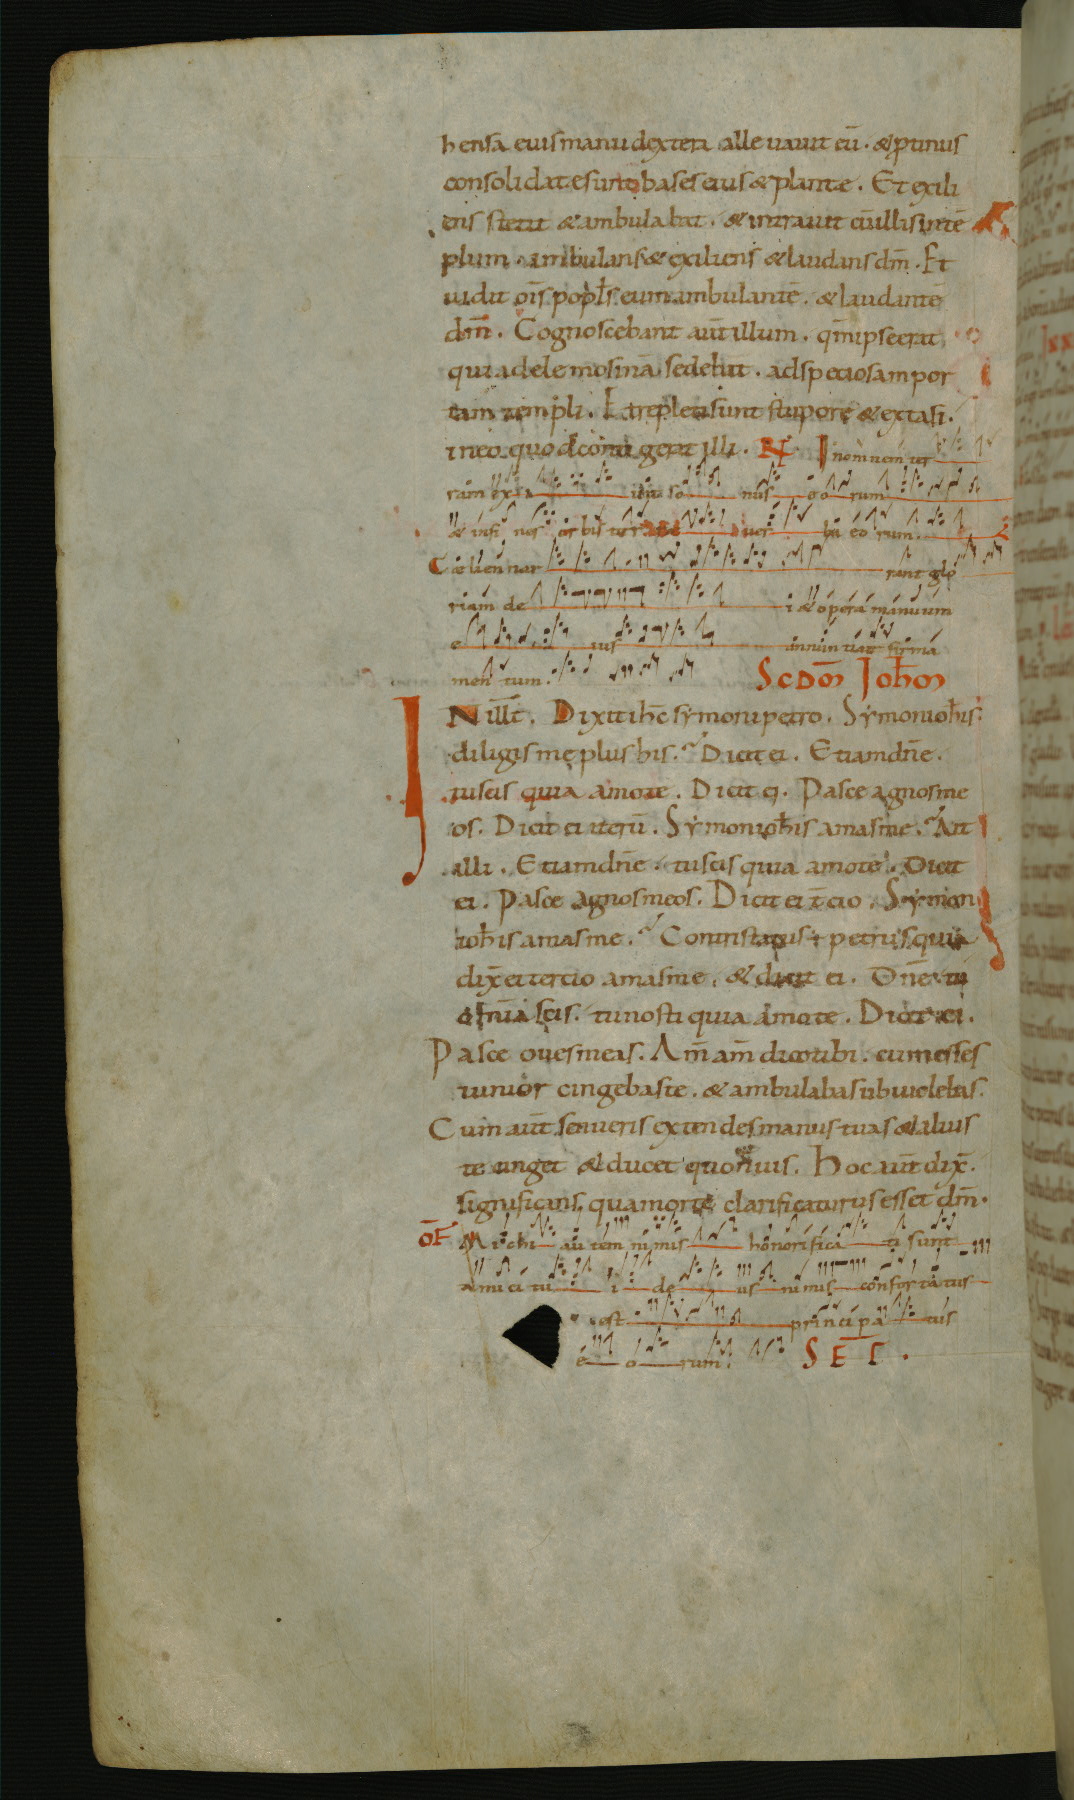 hensa eius manu dextera alle uauit eū. & ptinus
consolidatę sunt bases eius & plantę. Et exili
ens stetit & ambulabat. & intrauit cū illis in tē
plum. ambulans & exiliens & laudans dm̄. Et
uidit oīs popl̄s eum ambulantē. & laudantē
dm̄. Cognoscebant aūt illum. qm̄ ipse erat
qui ad elemosinā sedebat. ad speciosam por
tam templi. Et repleti sunt stupore & extasi.
in eo quod contigerat illi. R In omnem ter
ram exi uit so nus eo rum
& in fi nes or bis terrae uer ba eo rum.
Cæli enar rant glo
riam de i & opera manuum
e ius annuntiat firma
men tum.
Scdm Iohm
IN illt. Dixit ihc symoni petro. Symon ioħis
diligis me plus his. Dicit ei. Etiam dn̄e.
tu scis quia amo te. Dicit ei. Pasce agnos me
os. Dicit ei iterū. Symon ioħis amas me. Ait
illi. Etiam dn̄e. tu scis quia amo te. Dicit
ei. Pasce agnos meos. Dicit ei t̄cio. Symon
ioħis amas me. Contristatus ÷ petrus quia
dix̄ ei tertio amas me. & dicit ei. Dn̄e tu
omnia scis. tu nosti quia amo te. Dicit ei.
Pasce oues meas. Am̄ am̄ dico tibi. cum esses
iunior cingebas te. & ambulabas ubi uolebas.
Cum aūt senueris extendes manus tuas & alius
te cinget & ducet quo n uis. Hoc aūt dix̄.
significans qua morte clarificaturus esset dm̄.
OF Michi au tem nimis honorifica ti sunt
amici tu i de us nimis confortatus
est principa tus
e o rum.
SEC.